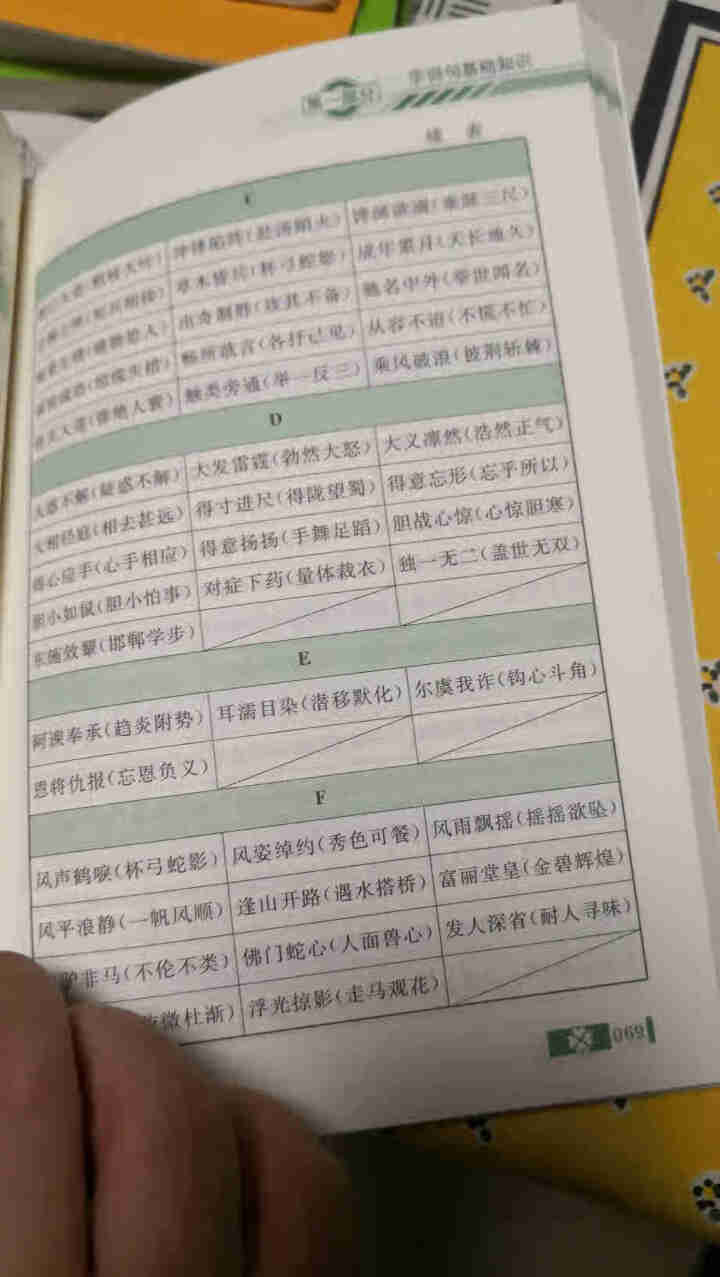 第一部分 字词句基础知识
续 表
C
冲锋陷阵(赴汤蹈火) 馋涎欲滴(垂涎三尺)
草木皆兵(杯弓蛇影) 成年累月(天长地久)
出奇制胜(攻其不备) 驰名中外(举世闻名)
畅所欲言(各抒己见) 从容不迫(不慌不忙)
触类旁通(举一反三) 乘风破浪(披荆斩棘)
D
大惑不解(疑惑不解) 大发雷霆(勃然大怒) 大义凛然(浩然正气)
大相径庭(相去甚远) 得寸进尺(得陇望蜀) 得意忘形(忘乎所以)
得心应手(心手相应) 得意扬扬(手舞足蹈) 胆战心惊(心惊胆寒)
胆小如鼠(胆小怕事) 对症下药(量体裁衣) 独一无二(盖世无双)
东施效颦(邯郸学步)
E
阿谀奉承(趋炎附势) 耳濡目染(潜移默化) 尔虞我诈(钩心斗角)
恩将仇报(忘恩负义)
F
风声鹤唳(杯弓蛇影) 风姿绰约(秀色可餐) 风雨飘摇(摇摇欲坠)
风平浪静(一帆风顺) 逢山开路(遇水搭桥) 富丽堂皇(金碧辉煌)
驴非马(不伦不类) 佛门蛇心(人面兽心) 发人深省(耐人寻味)
微杜渐) 浮光掠影(走马观花)
069